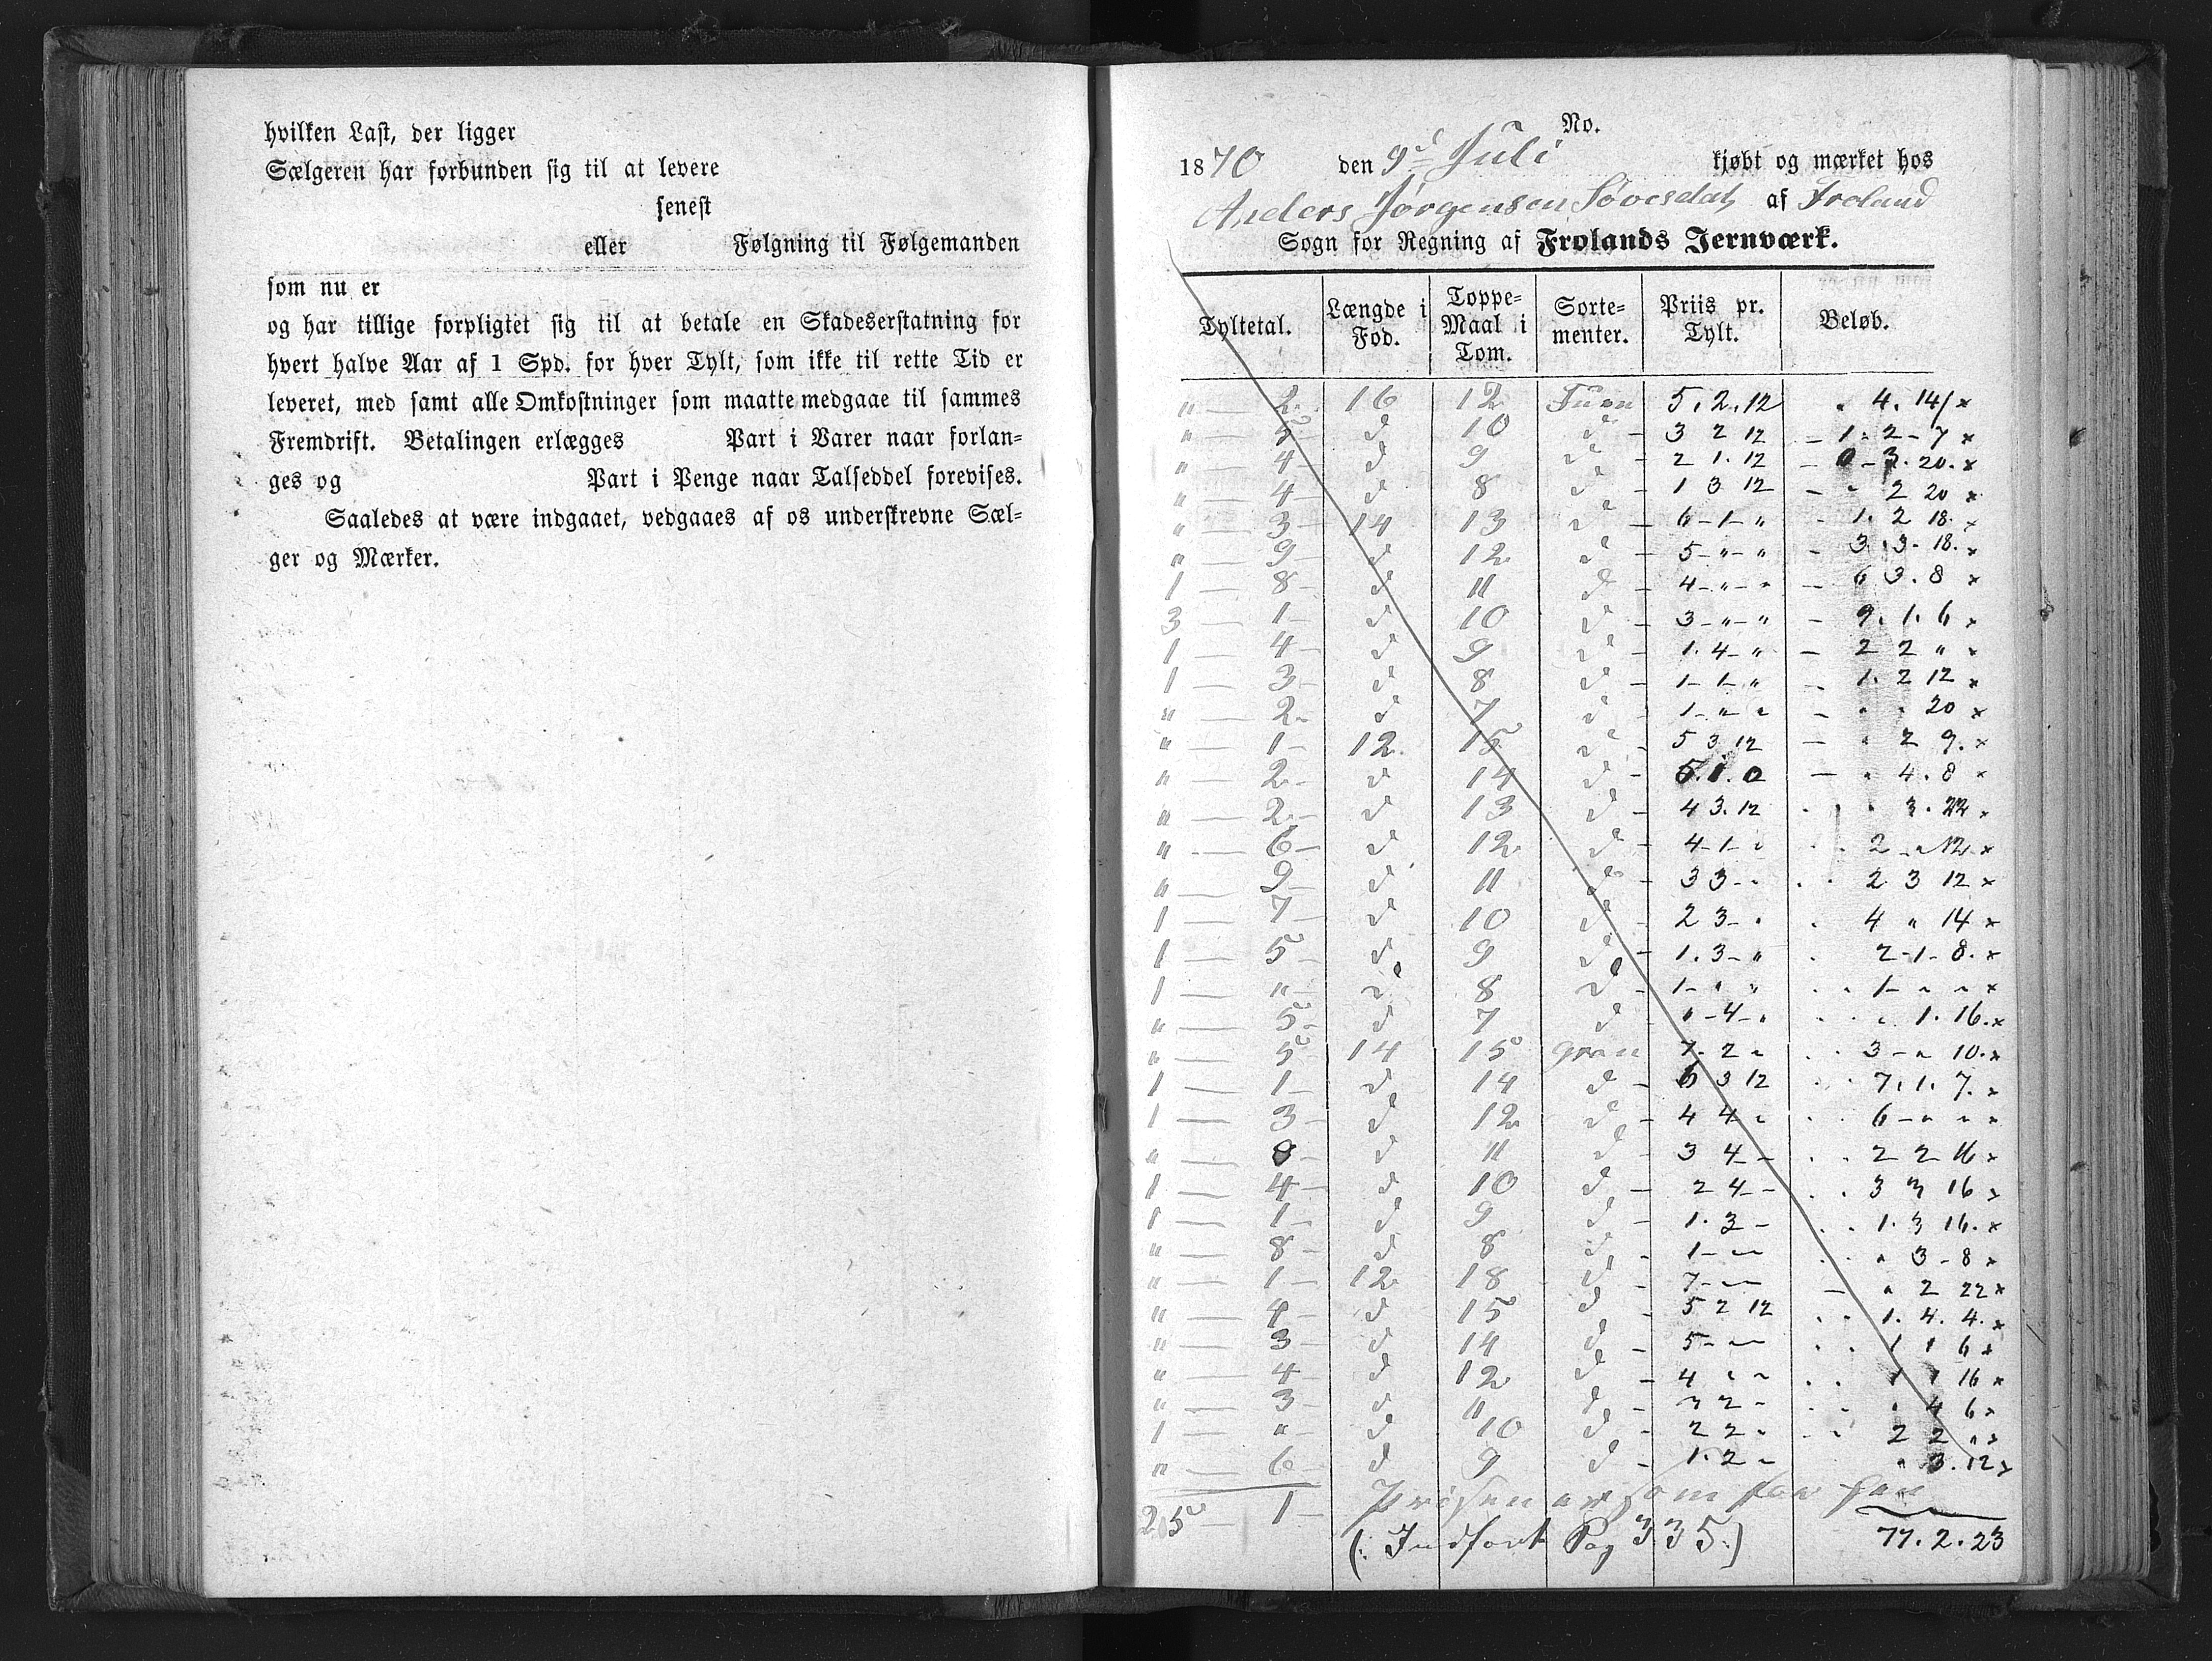 hvilken Last, der ligger
Sælgeren har forbunden sig til at levere
senest
eller Følgning til Følgemanden
som nu er
og har tillige forpligtet sig til at betale en Skadeserstatning for
hvert halve Aar af 1 Spd. for hver Tylt, som ikke til rette Tid er
leveret, med samt alle Omkostninger som maatte medgaae til sammes
Fremdrift. Betalingen erlægges Part i Varer naar forlan=
ges og Part i Penge naar Talseddel forevises.
Saaledes at være indgaaet, vedgaaes af os underskrevne Sæl=
ger og Mærker.
No.
1870 den 9d Juli kjøbt og mærket hos
Anders Jørgensen Løvesdal af Froland
Sogn for Regning af Frolands Jernværk.
Tyltetal. Længde i Fod. Toppe=Maal i Tom. Sorte=menter. Priis pr. Tylt. Beløb.
" — 2 16 12 Furu 5.2.12 " 4.14/ x
" — 5 d 10 d - 3 2 12 - 1.2-7 x
" — 4 d 9 d - 2 1.12 - 0-3.20. x
" — 4 d 8 d - 1 3 12 - " 2 20 x
" — 3 14 13 d - 6-1-" - 1.2 18. x
" — 9 d 12 d - 5-"-" - 3.3-18. x
1 — 8 d 11 d - 4-"-" - 6 3.8 x
3 — 1 d 10 d - 3-"-" - 9.1.6 x
1 — 4 d 9 d - 1.4-" - 2 2 " x
1 — 3 d 8 d - 1-1-" - 1.2 12 x
" — 2 d 7 d - 1-"-" - " " 20 x
" — 1 12 15 d - 5 3 12 - " 2 9. x
" — 2 d 14 d - 5.1.0 - " 4.8 x
" — 2 d 13 d - 4 3.12 " 3.22 x
" — 6 d 12 d - 4-1-" 2-"12 x
" — 9 d 11 d - 3 3-" 2 3 12 x
1 — 7 d 10 d - 2 3-" 4 " 14 x
1 — 5 d 9 d - 1.3-" 2-1-8. x
1 — " d 8 d - 1-" " 1-" " x
" — 5 d 7 d "-4-" " 1.16. x
" — 5 14 15 Gran 7.2 " 3-" 10. x
1 — 1 d 14 d - 6 3 12 7.1.7. x
1 — 3 d 12 d - 4 4 " 6-" " x
" — 8 d 11 d - 3 4- 2 2 16 x
1 — 4 d 10 d - 2 4- 3 3 16 x
1 — 1 d 9 d - 1.3- 1.3 16. x
" — 8 d 8 d - 1-" " 3-8 x
" — 1 12 18 d - 7-" - " 2 22 x
" — 4 d 15 d - 5 2 12 1.4.4. x
" — 3 d 14 d - 5-" 1 1 6 x
" — 4 d 12 d - 4 " " 1 1 16 x
" — 3 d 11 d - 3 2- " 4 6 x
1 — " d 10 d - 2 2 " 2 2 " x
" — 6 d 9 d - 1.2- " 3.12 x
25 — 1 Prisen er som
(: Indført Pag 335:) 77.2.23